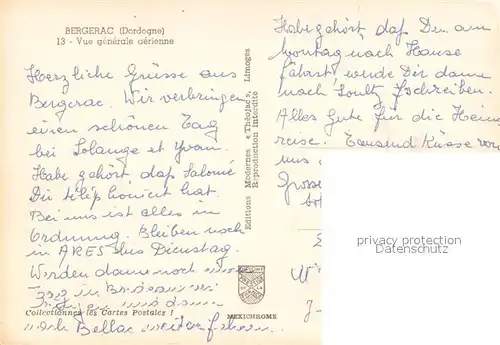 BERGERAC (Dordogne)
13 - Vue générale aérienne
Herzliche Grüsse aus
Bergerac. Wir verbringen
einen schönen Tag
bei Solange et Yvan.
Habe gehört dass Salomé
Dir telephoniert hat.
Bei uns ist alles in
Ordnung. Bleiben noch
in ARES bis Dienstag.
Werden dann noch
Tag in
in dann
nach Bellac weiterfahren.
Collectionnez les Cartes Postales !
Editions Modernes « Théojac », Limoges
Reproduction Interdite
MEXICHROME
Habe gehört, daß Du am
Montag nach Hause
fährst, werde Dir dann
nach Soultz schreiben.
Alles Gute für die Heim
reise. Tausend Küsse von
uns
Gross
privacy protection
Datenschutz